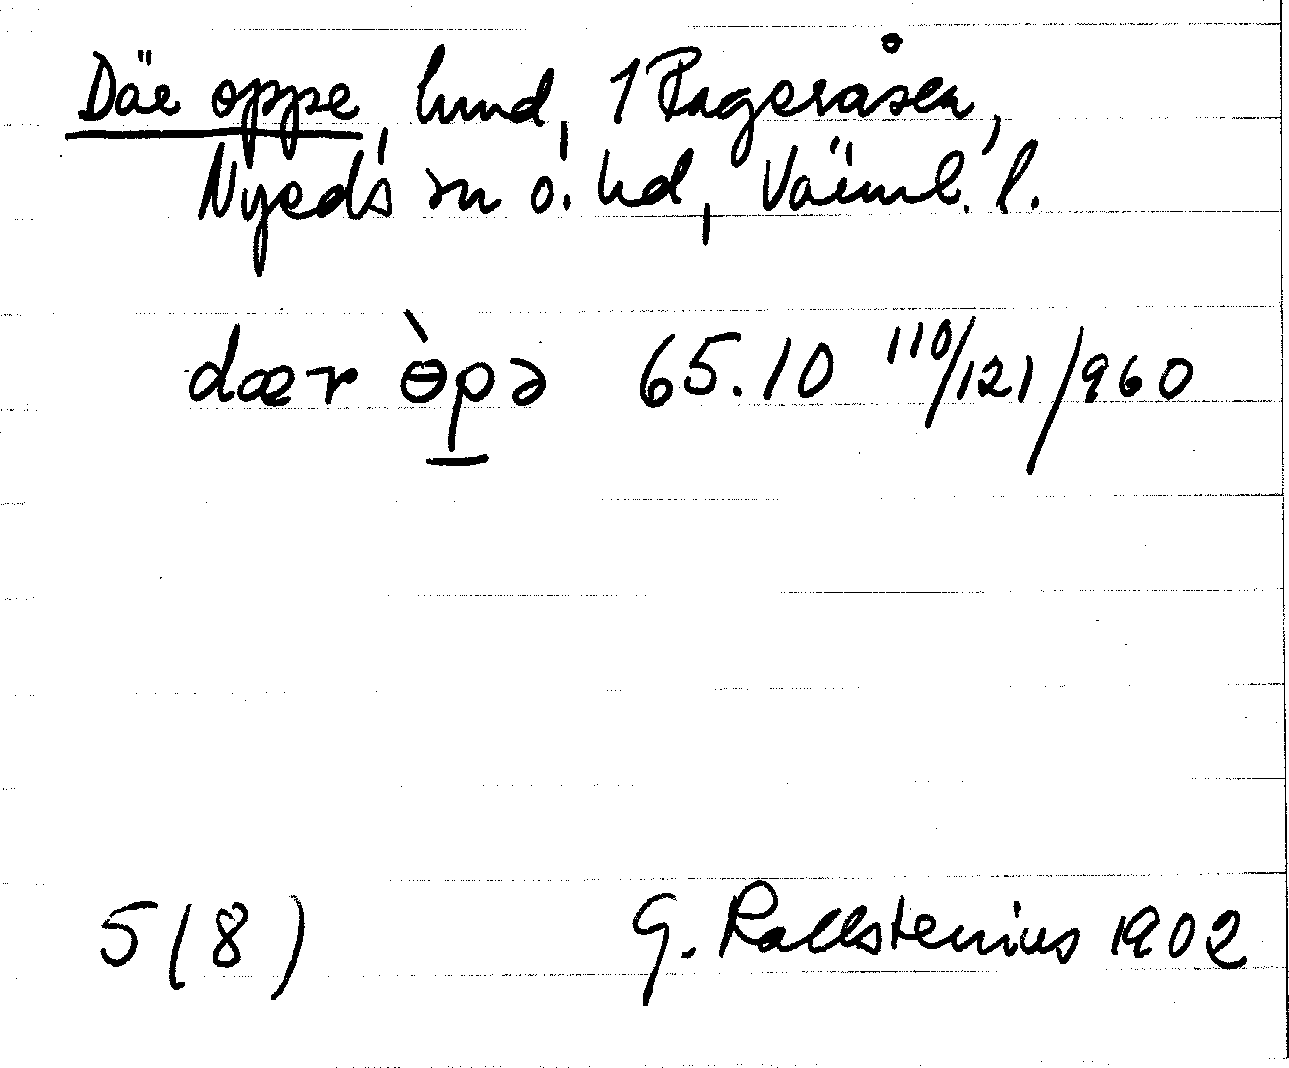 Där oppe, lund, 1 Rageråsen,
Nyeds sn o. hd, Värml. l.
dær ò̵pə 65.10 110/121/960
5(8) G. Kallstenius 1902